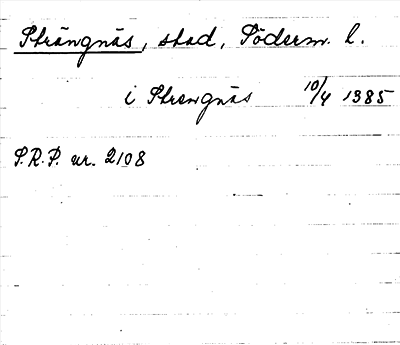 Strängnäs, stad, Söderm. l.
i Strengnäs 10/4 1385
S.R.P. nr. 2108